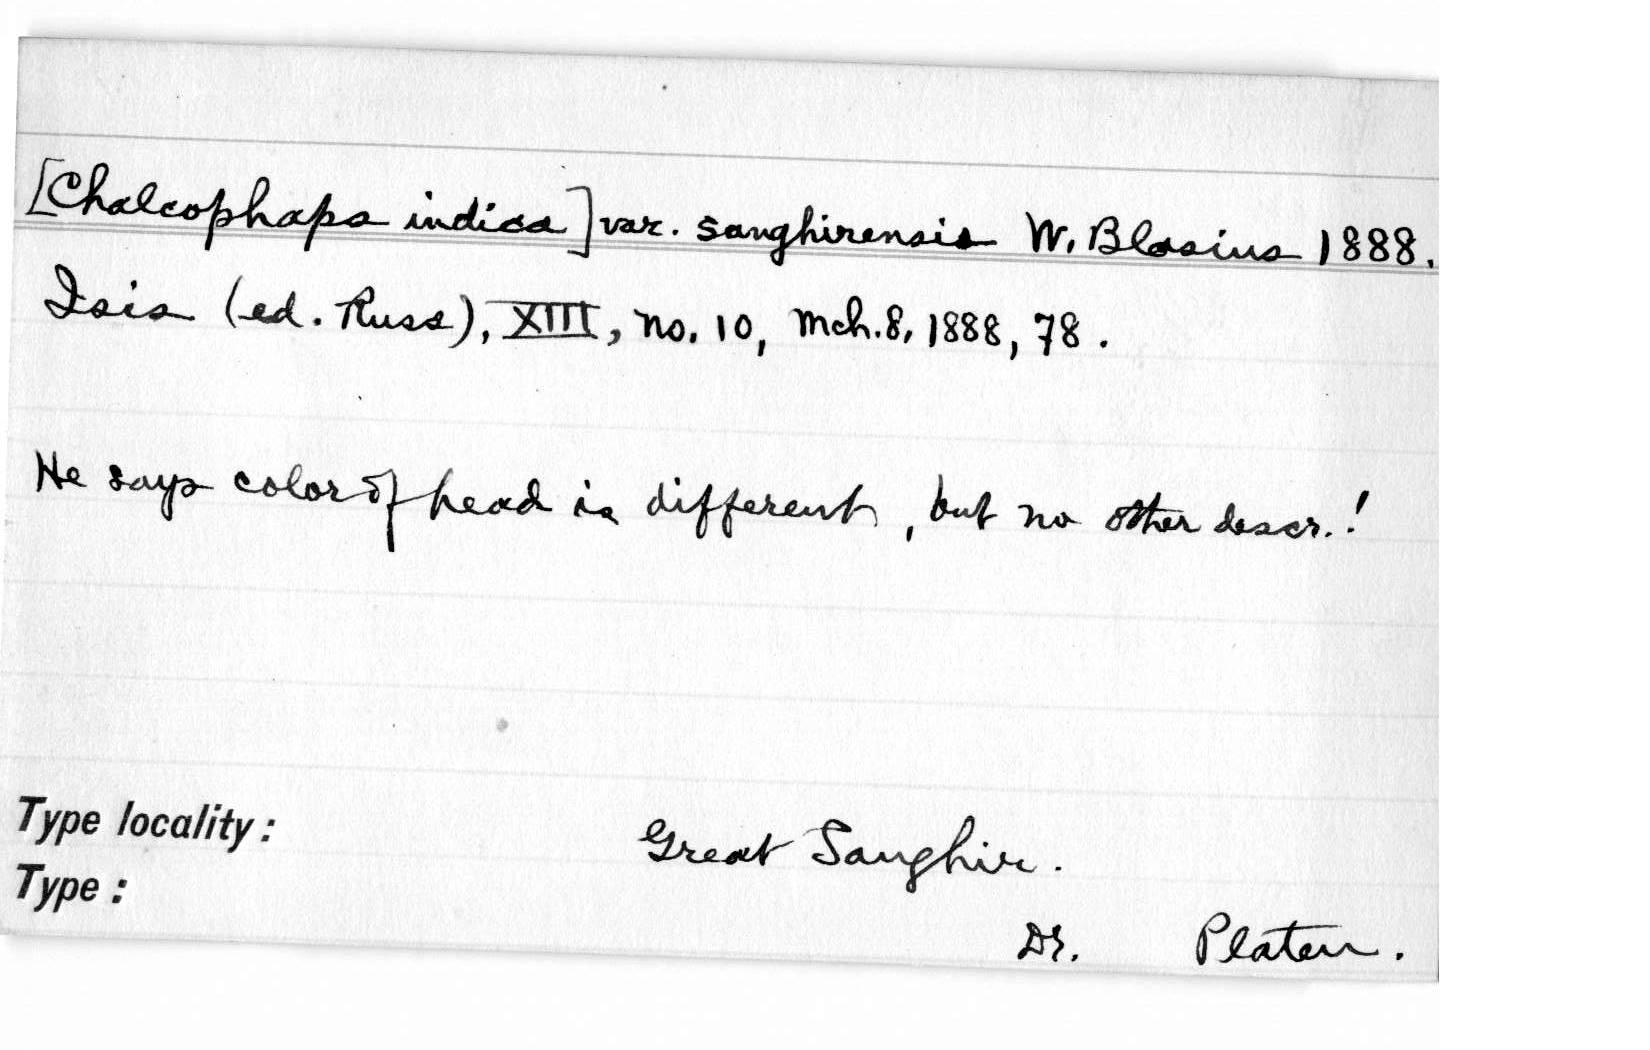 [Chalcophaps indica] var. sanghirensis W. Blasius 1888.
Isis (ed. Russ), XIII, no. 10, Mch. 8, 1888, 78.
He says color of head is different, but no other descr.!
Type locality: Great Sanghir.
Type: Dr. Platen.